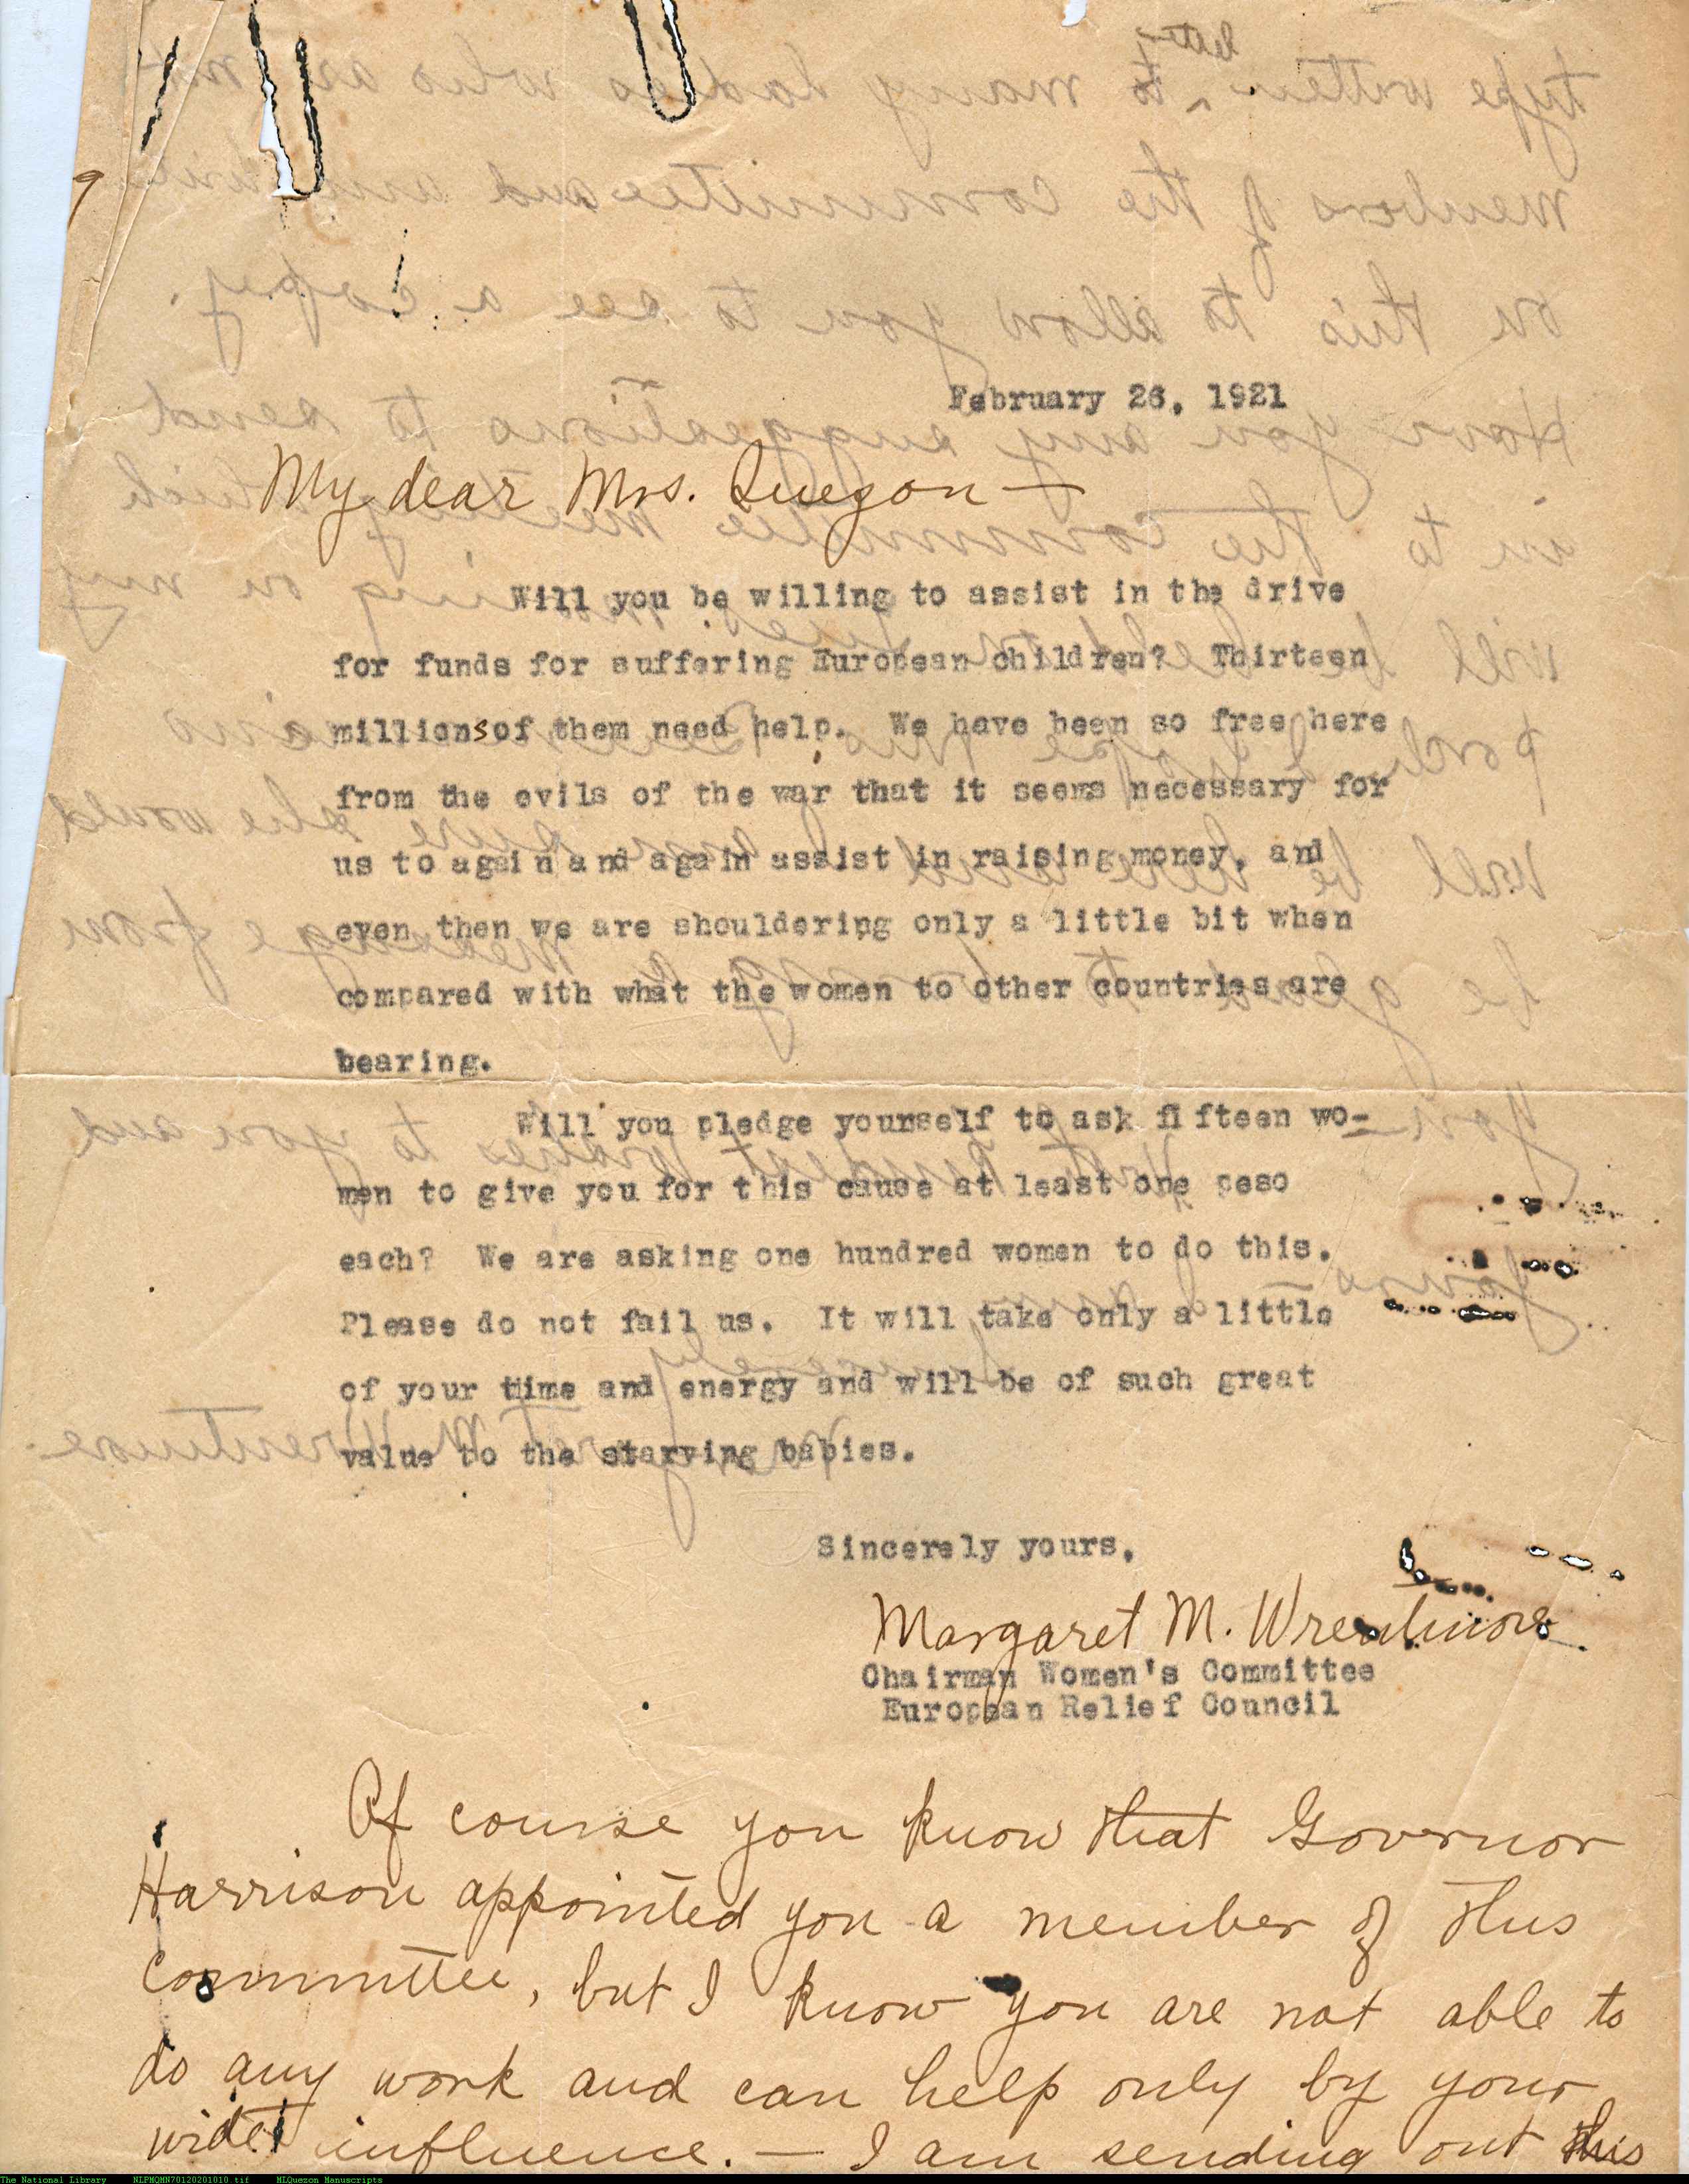 February 26, 1921
My dear Mrs. Quezon —
Will you be willing to assist in the drive
for funds for suffering European children? Thirteen
millions of them need help. We have been so free here
from the evils of the war that it seems necessary for
us to again and again assist in raising money, and
even then we are shouldering only a little bit when
compared with what the women to other countries are
bearing.
Will you pledge yourself to ask fifteen wo-
men to give you for this cause at least one peso
each? We are asking one hundred women to do this.
Please do not fail us. It will take only a little
of your time and energy and will be of such great
value to the starving babies.
Sincerely yours,
Margaret M. Wrentmore
Chairman Women's Committee
European Relief Council
Of course you know that Governor
Harrison appointed you a member of this
committee, but I know you are not able to
do any work and can help only by your
wide influence. — I am sending out this
The National Library NLPMQMN70120201010.tif MLQuezon Manuscripts